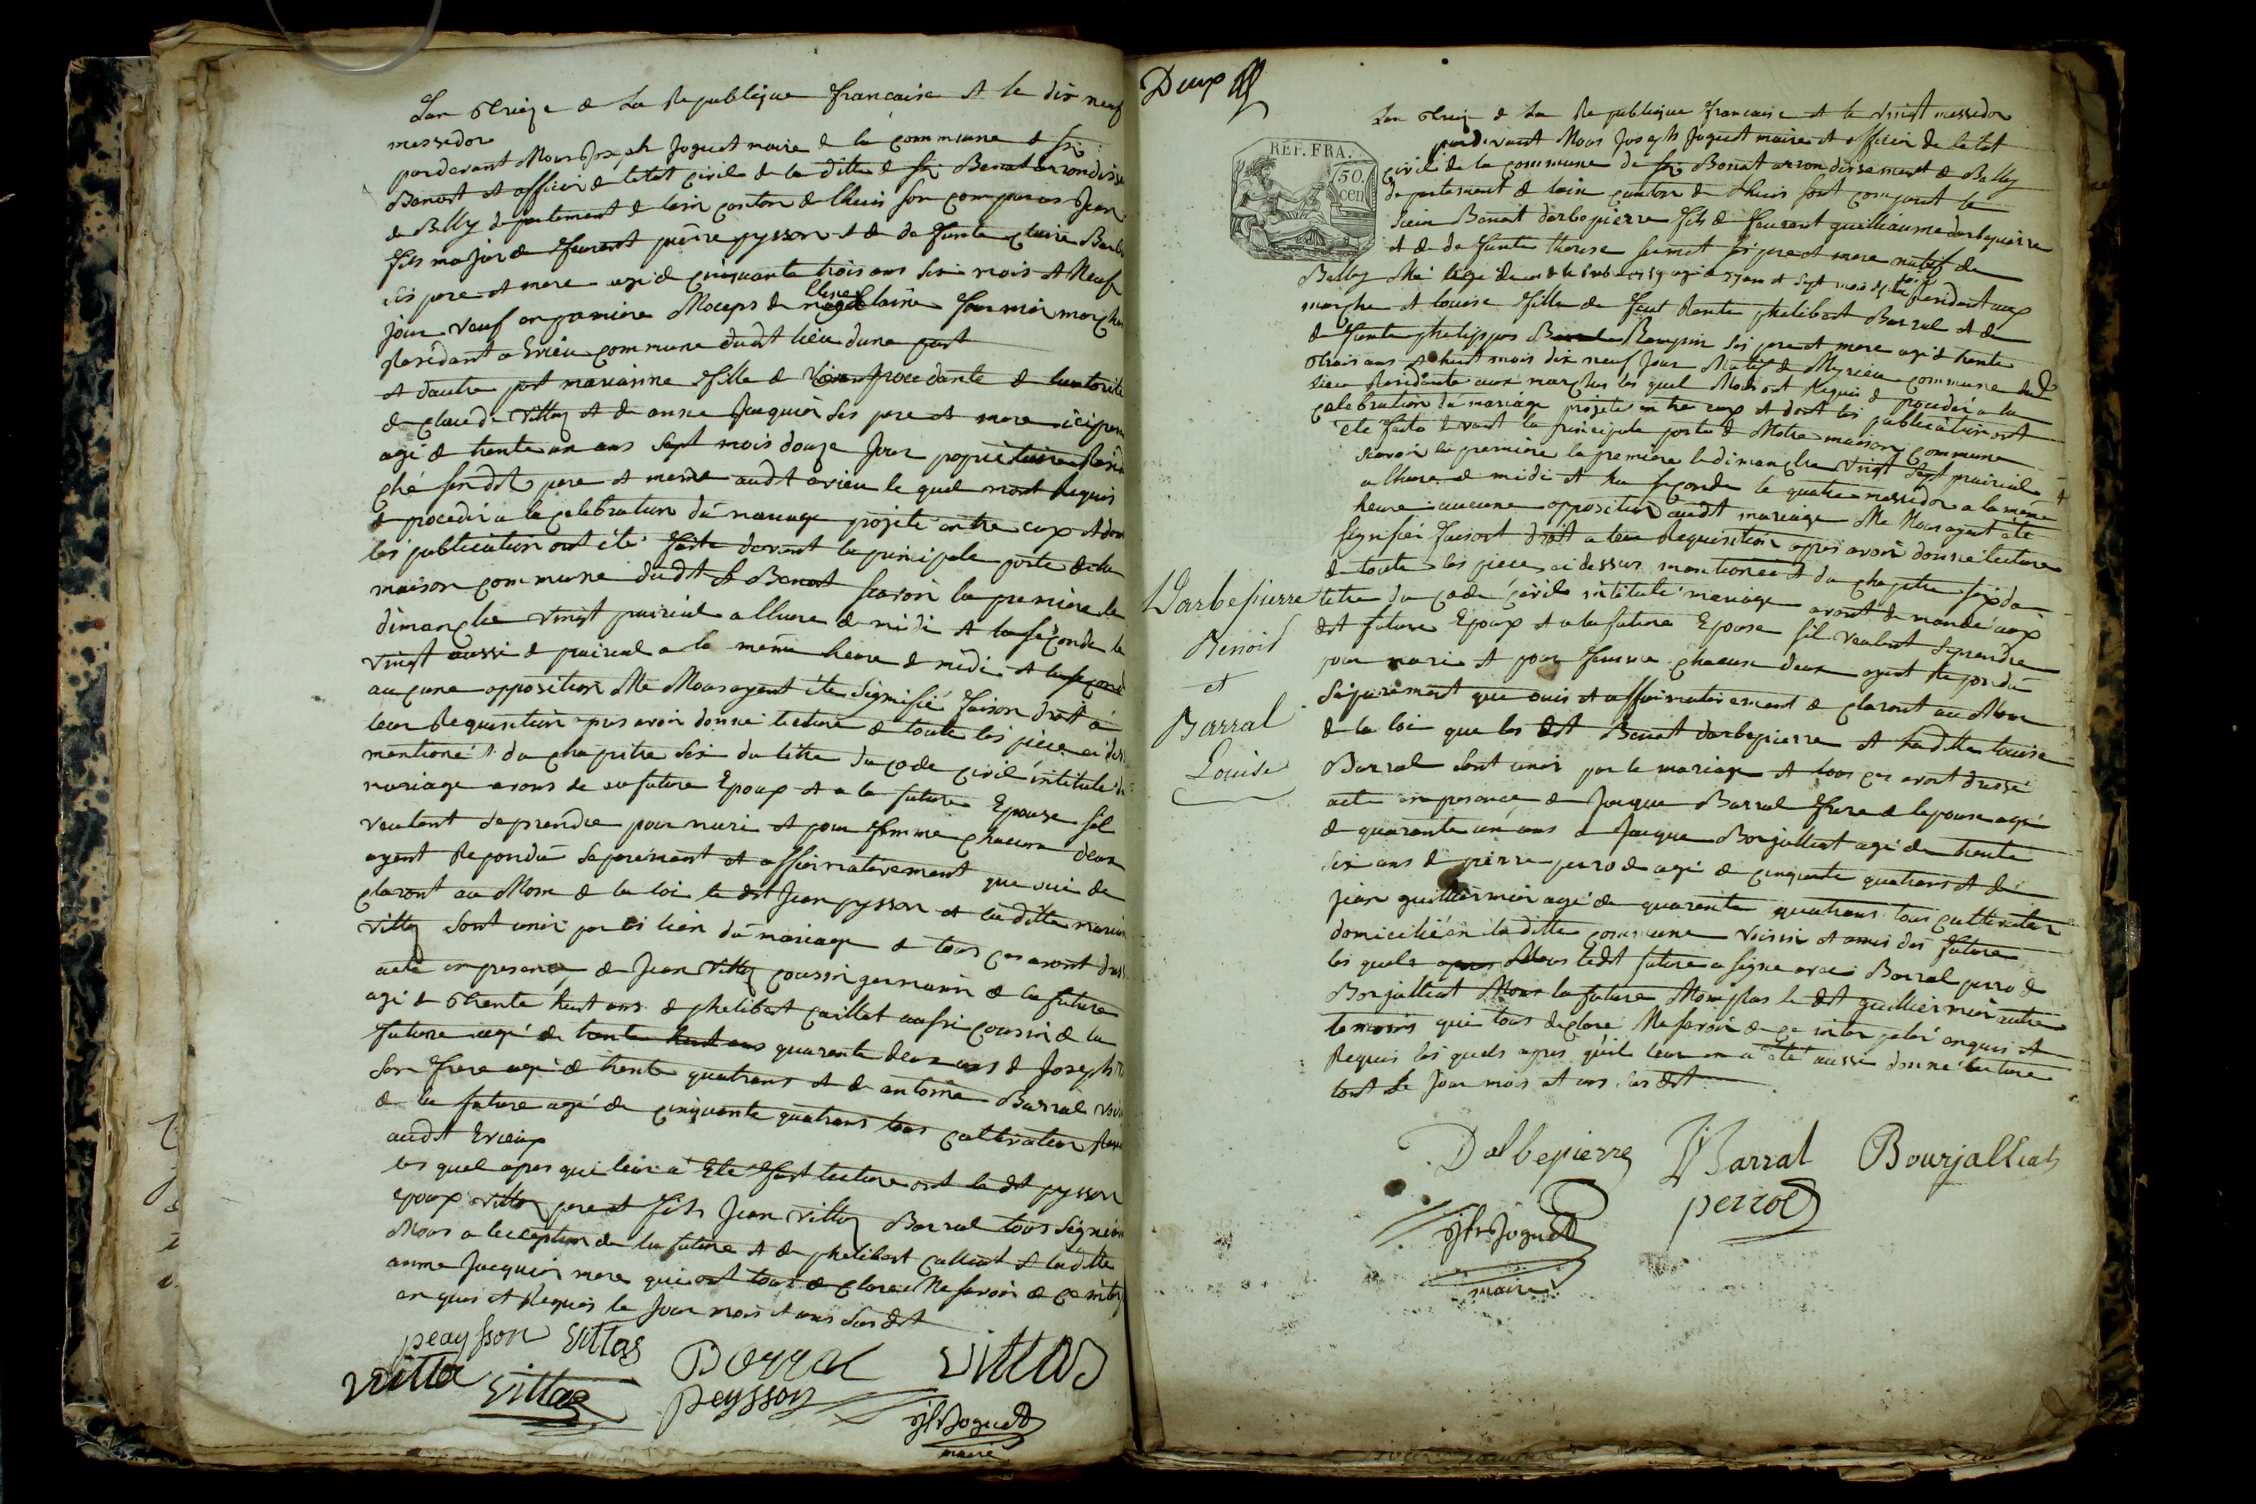 Lan Treize de La Republique francaise et le dix neuf
messidor
pardevant Nous Joseph Joguet maire de la commune de St
Benoit et officier de letat civil de la ditte de St Benoit arrondiss
de Belly departement de lain canton de lhuis son comparus Jean
fils majeur de Laurent pierre pysson et de defunte claire Barb
ses pere et mere agé de cinquante trois ans six mois et Neuf
jour veuf en premiere Noceps de claire
Residant a Evieu commune dudit lieu dune part
et dautre part marianne fille de procedante de lautorite
de claude vittoz et de anne Jacquier ses pere et mere ici
agé de trente un ans sept mois douze Jour propriétaire
ché sesdit pere et mere audit evieu le quel mont Requis
de proceder a la celebration du mariage projeté entre eux et dont
les publication ont été faite devant la principale porte de la
maison commune dudit St Benoit scavoir la premiere le
dimanche vingt prairial a lheure de midi et la seconde le
vingt aussi de prairial a la même heure de midi et la seconde
aucune opposition Ne Nous ayant été signifié faison droit a
leur Requisition apres avoir donné lecture de toute les pièce ci des
mentioné et du chapitre six du titre du code civil intitulé du
mariage avons de au future Epoux et a la future Epouse sil
veulent se prendre pour mari et pour femme chacun deux
ayant Repondu separement et affirmativement que oui de
claront au Nom de la loi le dit Jean pysson et la ditte marian
vittoz sont unir par les lien du mariage de tous ces avont dres
acte en presence de Jean vittoz coussin germain de la future
agé de trente huit ans de phelibert caillat aussi coussin de la
future agé de trente huit ans quarante deux ans de Joseph
son frere agé de trente quatrans et de antoine Barral
de la future agé de cinquante quatrans tous cultivateur
audit Evieux
les quel apres que leur a Eté fait lecture ont le dit pysson
epoux vittoz pere et fils Jean vittoz Barral tous signé
Nous a leception de la future et de phelibert caillat et la ditte
anne Jacquier mere qui ont tous declaré Ne savoir de ce
enquis et Requis le Jour mois et ans susdit
peaysson vittoz
vitto vittoz Barral vittoz
peysson
Jh Joguet
maire
Deux
REP. FRA.
50.
cen
Lan Treize de La Republique francaise et le vingt messidor
pardevant Nous Joseph Joguet maire et officier de letat
civil de la commune de St Benoit arrondissement de Belley
departement de lain canton de lhuis sont comparut le
sieur Benoit darbepierre fils de Laurent guilliaume darbepierre
et de defunte therese ses pere et mere natif de
Belley
marche et louise fille de feut phelibert Barral et de
defunte phelippes ses pere et mere agé de trente
trois ans et huit mois dix neuf Jour Natif de Myrieu commune dudit
lieu Residante aux marches les quel Nous ont Requis de proceder a la
celebration du mariage projeté entre eux et dont les publication ont
été faite devant la principale porte de Notre maison commune
scavoir la premiere la premiere le dimanche vingt sept prairial
a lheure de midi et ha seconde le quatre messidor a la même
heure aucune opposition audit mariage Ne Nous ayant été
signifié faisont droit a leur Requisition apres avoir donné lecture
de toute les piece ci dessus mentioné et du chapitre six du
titre du code civil intitulé mariage avont demandé aux
dit future Epoux et a la future Epouse sil veulent se prendre
pour mari et pour femme chacun deux ayant Repondu
séparement que ouis et affirmativement declaront au Nom
de la loi que les dit Benoit darbepierre et ha ditte louise
Barral sont unir par le mariage de tous ces avont dressé
acte en presence de Jacque Barral frere de lepouse agé
de quarante un ans de Jacque Borjalliat agé de trente
six ans de pierre perrod agé de cinquante quatrans et de
jean guilliermin agé de quarente quatrans tous cultivateur
domicilié en la ditte commune voisin et amis des future
les quels apres Nous ledit future a signé avec Barral perrod
Borjalliat Nous la future Non plus le dit guilliermin autre
temoins qui tous declare Ne savoir de ce interpelé enquis et
Requis les quels apres quil leur en a été aussi donné lecture
tout le Jour mois et ans susdit
Darbepierre
Benoit
et
Barral
Louise
Dalbepierre JBarral Bourjalliat
perrod
Jh Joguet
maire